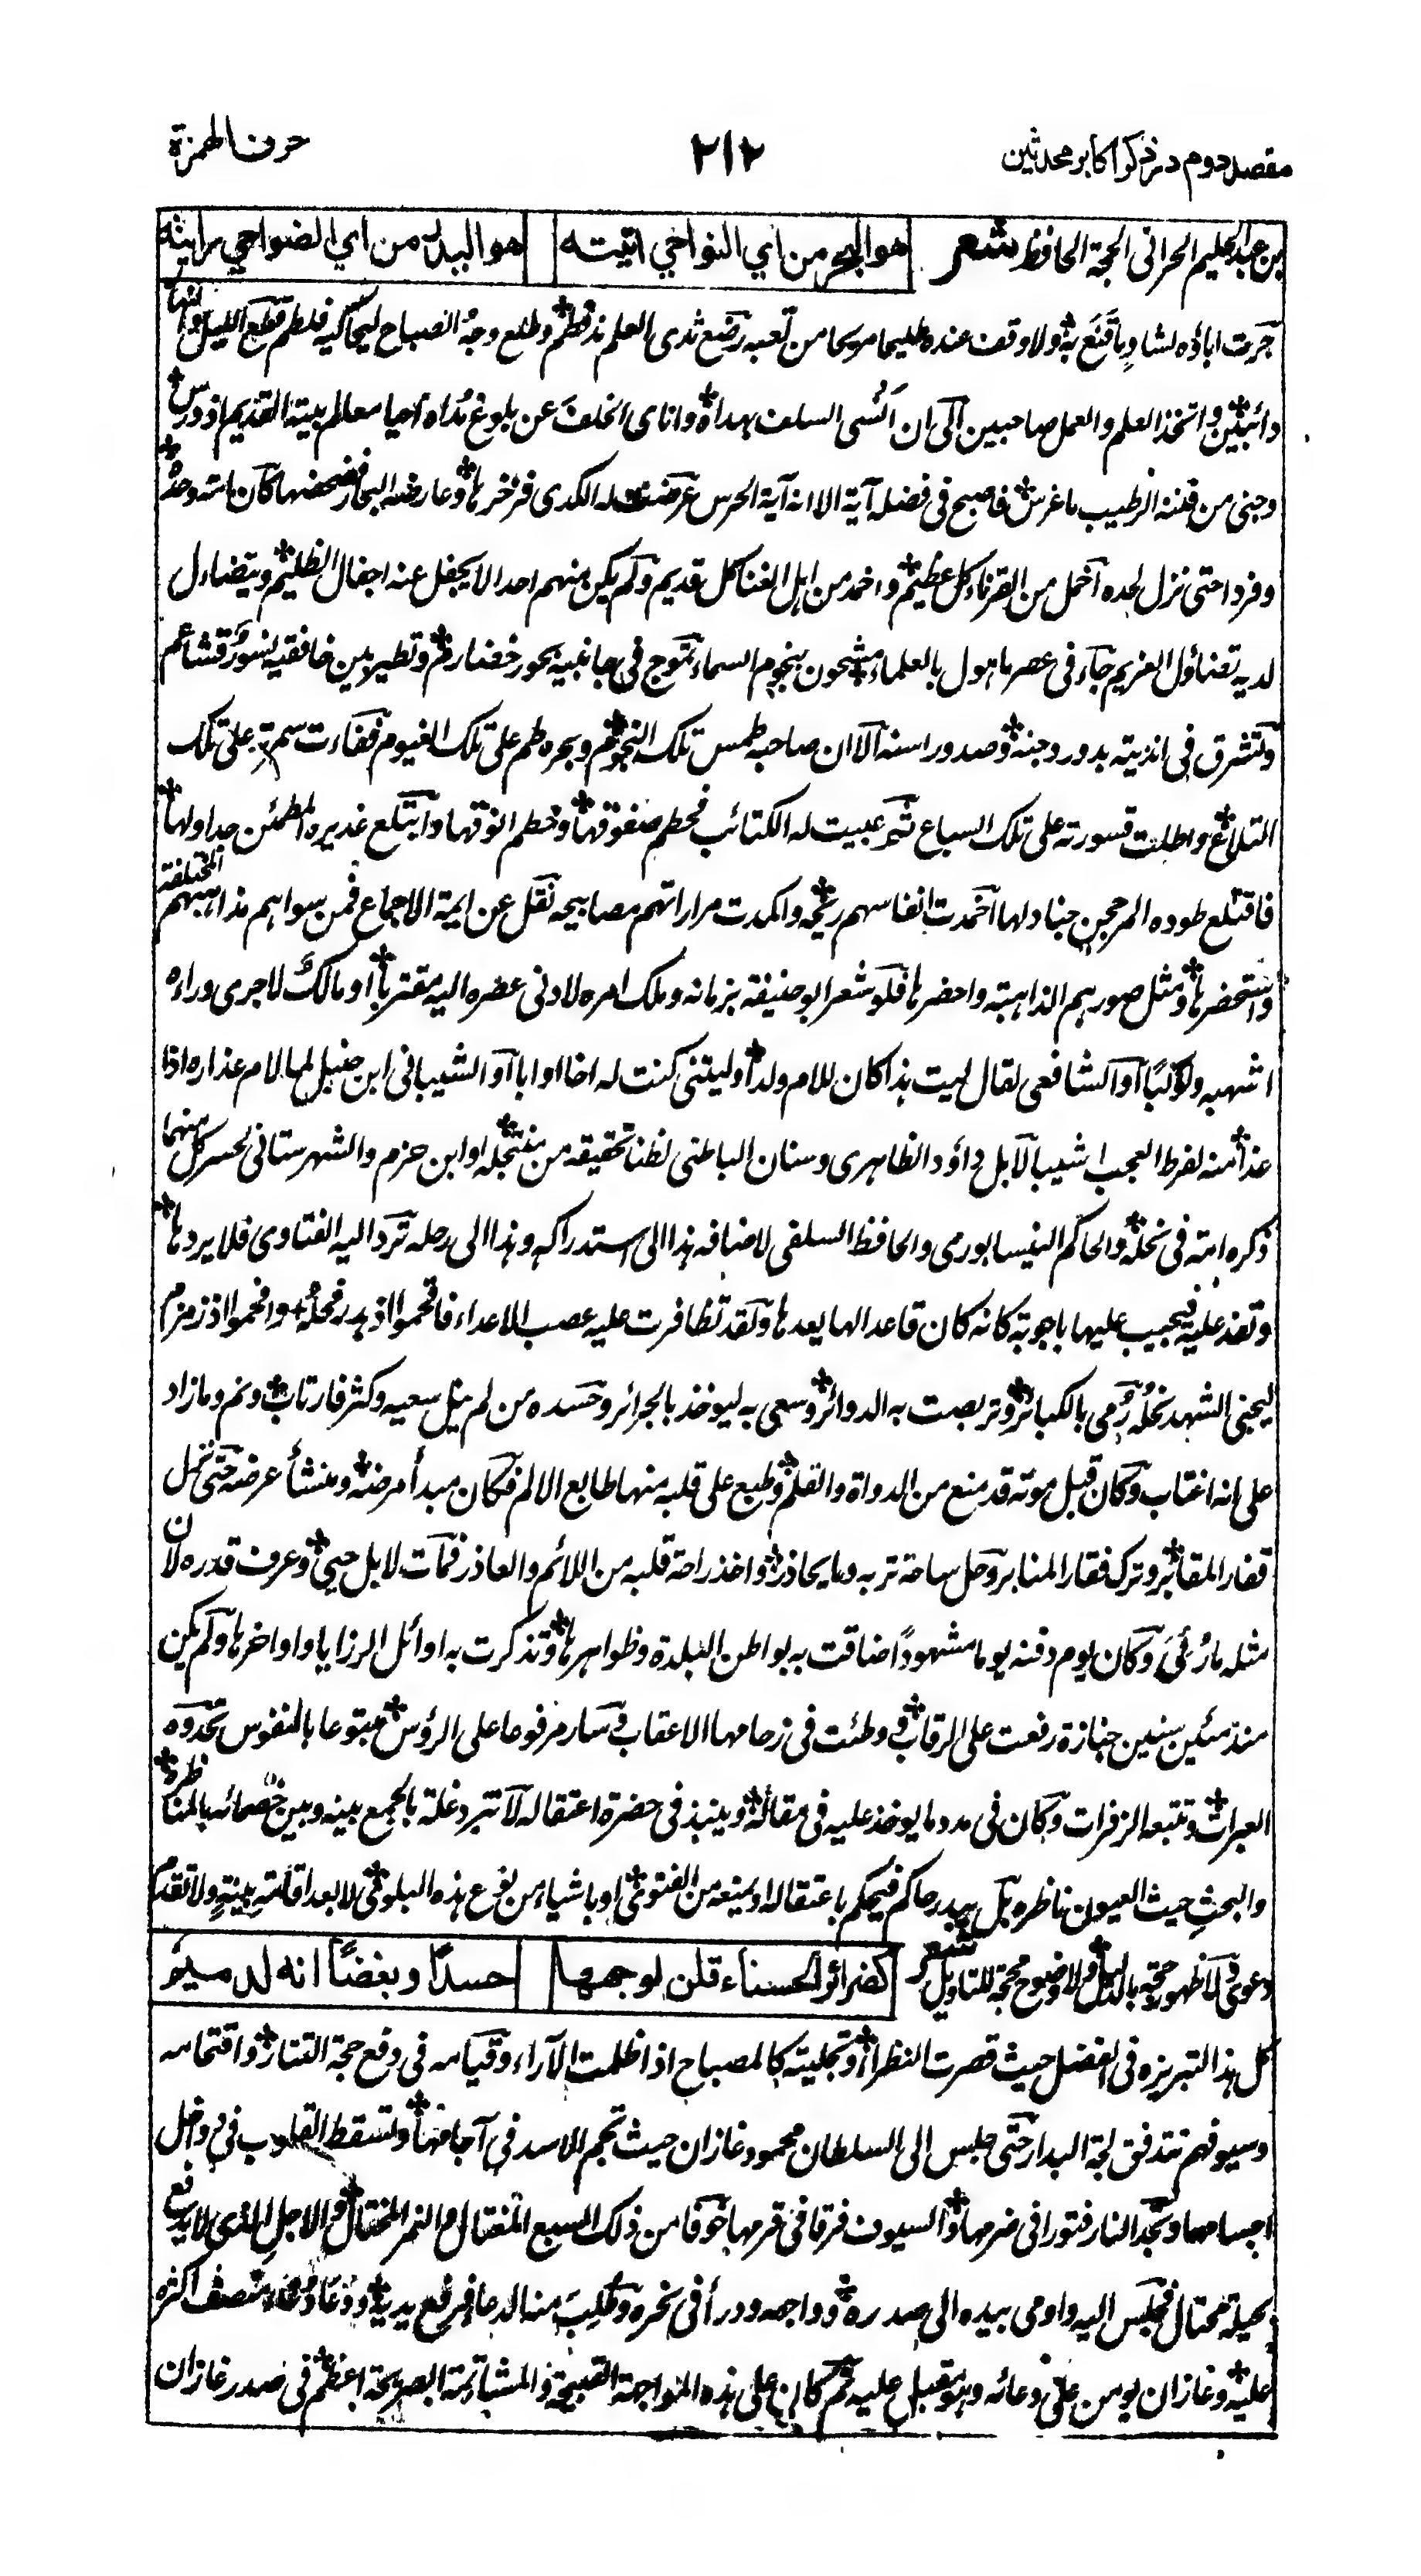 مقصد دوم در ذکر اکابر محدثین
۲۱۲
حرف الهمزة
بن عبد الحلیم الحرانی الحجة الحافظ شعر هو البحر من اي النواحي اتيته هو البدر من اي الضواحي رايته
جرت اباؤه لشاو ما قنع به ولا وقف عنده طلیحا مریحا من تعبه رضع ثدی العلم منذ فطم وطلع وجه الصباح لیحاکیه فلطم وقطع اللیل والنهار
دائبین واتخذ العلم والعمل صاحبین الی ان انسی السلف بهداه وانای الخلف عن بلوغ مداه احیا معالم بیته القدیم اذ درس
وجنی من فننه الرطیب ما غرس فاصبح فی فضله آیة الا انه آیة الحرس عرضت له الکدی فزخزحها وعارضته البحار فضحضحها کان امة وحده
وفردا حتی نزل لحده اخمل من القرناء کل عظیم واخمد من اهل الغنا کل قدیم ولم یکن منهم احد الا یجفل عنه اجفال الظلیم ویتضاءل
لدیه تضاؤل الغریم جاء فی عصر ماهول بالعلماء مشحون بنجوم السماء تموج فی جانبیه بحور خضارم وتطیر بین خافقیه نسور قشاعم
وتشرق فی اندیته بدور دجنة وصدور اسنة الا ان صاحبه طمس تلک النجوم وبحره طم علی تلک الغیوم ففاءت سمرته علی تلک
التلاع واطلت قسورته علی تلک السباع ثم عبیت له الکتائب فحطم صفوفها وخطم انوفها وابتلع غدیره المطمئن جداولها
فاقتلع طوده المرجحن جنادلها اخمدت انفاسهم ریحه واکمدت مراراتهم مصابیحه نقل عن ایمة الاجماع فمن سواهم مذاهبهم المختلفة
واستحضرها ومثل صورهم الذاهبة واحضرها فلو شعر ابو حنیفة بزمانه وملک امره لادنی عصره الیه مقتربا او مالک لاجری وراءه
اشهبه ولو کبا او الشافعی لقال لیت هذا کان للام ولدا ولیتنی کنت له اخا او ابا او الشیبانی ابن حنبل لما لام عذاره اذا
غدا منه لفرط العجب اشیبا لا بل داؤد الظاهری وسنان الباطنی لظنا تحقیقه من منتحله او ابن حزم والشهرستانی لحشر کل منهما
ذکره امته فی نحله والحاکم النیسابوری والحافظ السلفی لاضافه هذا الی استدراکه وهذا الی رحله ترد الیه الفتاوی فلا یردها
وتفد علیه فیجیب علیها باجوبة کانه کان قاعدا لها یعدها ولقد تظافرت علیه عصب الاعداء فاقحموا اذ هدر فحله وافحموا اذ زمزم
لیجنی الشهد نحله رمی بالکبائر وتربصت به الدوائر وسعی به لیوخذ بالجرائر وحسده من لم ینل سعیه وکثر فارتاب ونم وما زاد
علی انه اغتاب وکان قبل موته قد منع من الدواة والقلم وطبع علی قلبه منها طابع الالم فکان مبدأ مرضه ومنشأ عرضه حتی نزل
قفار المقابر وترک فقار المنابر وحل ساحة تربه وما یحاذر واخذ راحة قلبه من اللائم والعاذر فمات لا بل حیی وعرف قدره لان
مثله ما رئی وکان یوم دفنه یوما مشهودا ضاقت به بواطن البلدة وظواهرها وتذکرت به اوائل الرزایا واواخرها ولم یکن
منذ مئین سنین جنازة رفعت علی الرقاب ووطئت فی زحامها الاعقاب فسار مرفوعا علی الرؤس متبوعا بالنفوس تحدوه
العبرات وتتبعه الزفرات وکان فی مدد ما یوخذ علیه فی مقاله وینبذ فی حضرة اعتقاله لا تبرد غلة بالجمع بینه وبین خصمائه بالمناظرة
والبحث حیث العیون ناظره بل یبدر حاکم فیحکم باعتقاله او یمنعه من الفتوی او باشیاء من نوع هذه البلوی لا بعد اقامة بینة ولا تقدم
دعوی ولا ظهور حجة بالدلیل ولا وضوح محجة للتاویل شعر کضرائر الحسناء قلن لوجهها حسدا وبغضا انه لدميم
کل هذا لتبریزه فی الفضل حیث قصرت النظراء وتجلیته کالمصباح اذا ظلمت الآراء وقیامه فی دفع حجة التتار واقتحامه
وسیوفهم تتدفق لجة البدار حتی جلس الی السلطان محمود غازان حیث تجم الاسد فی آجامها وتسقط القلوب فی دواخل
اجسامها وتجد النار فتورا فی ضرمها والسیوف فرقا فی قرمها خوفا من ذلک السبع المغتال والنمر المختال والاجل الذی لا یدفع
بحیلة محتال فجلس الیه واومی بیده الی صدره وواجهه ودرأ فی نحره وطلب منه الدعا فرفع یدیه ودعا دعاء منصف اکثره
علیه وغازان یومن علی دعائه وهو مقبل علیه ثم کان علی هذه المواجهة القبیحة والمشاتمة الصریحة اعظم فی صدر غازان